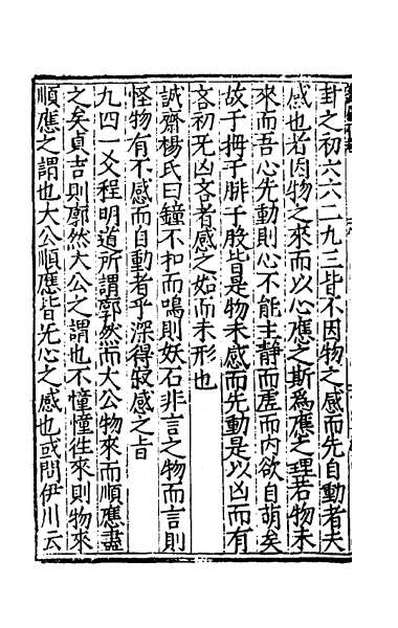 卦之初六六二九三皆不因物之感而先自動者夫
感也者因物之來而以心應之斯爲應之理若物未
來而吾心先動則心不能主静而虛而内欲自萌矣
故于拇于腓于股皆是物未感而先動是以凶而有
吝初无凶吝者感之如而未形也
誠齋楊氏曰鐘不扣而鳴則妖石非言之物而言則
怪物有不感而自動者乎深得寂感之旨
九四一爻程明道所謂廓然而大公物來而順應盡
之矣貞吉則廓然大公之謂也不憧憧往來則物來
順應之謂也大公順應皆无心之感也或問伊川云